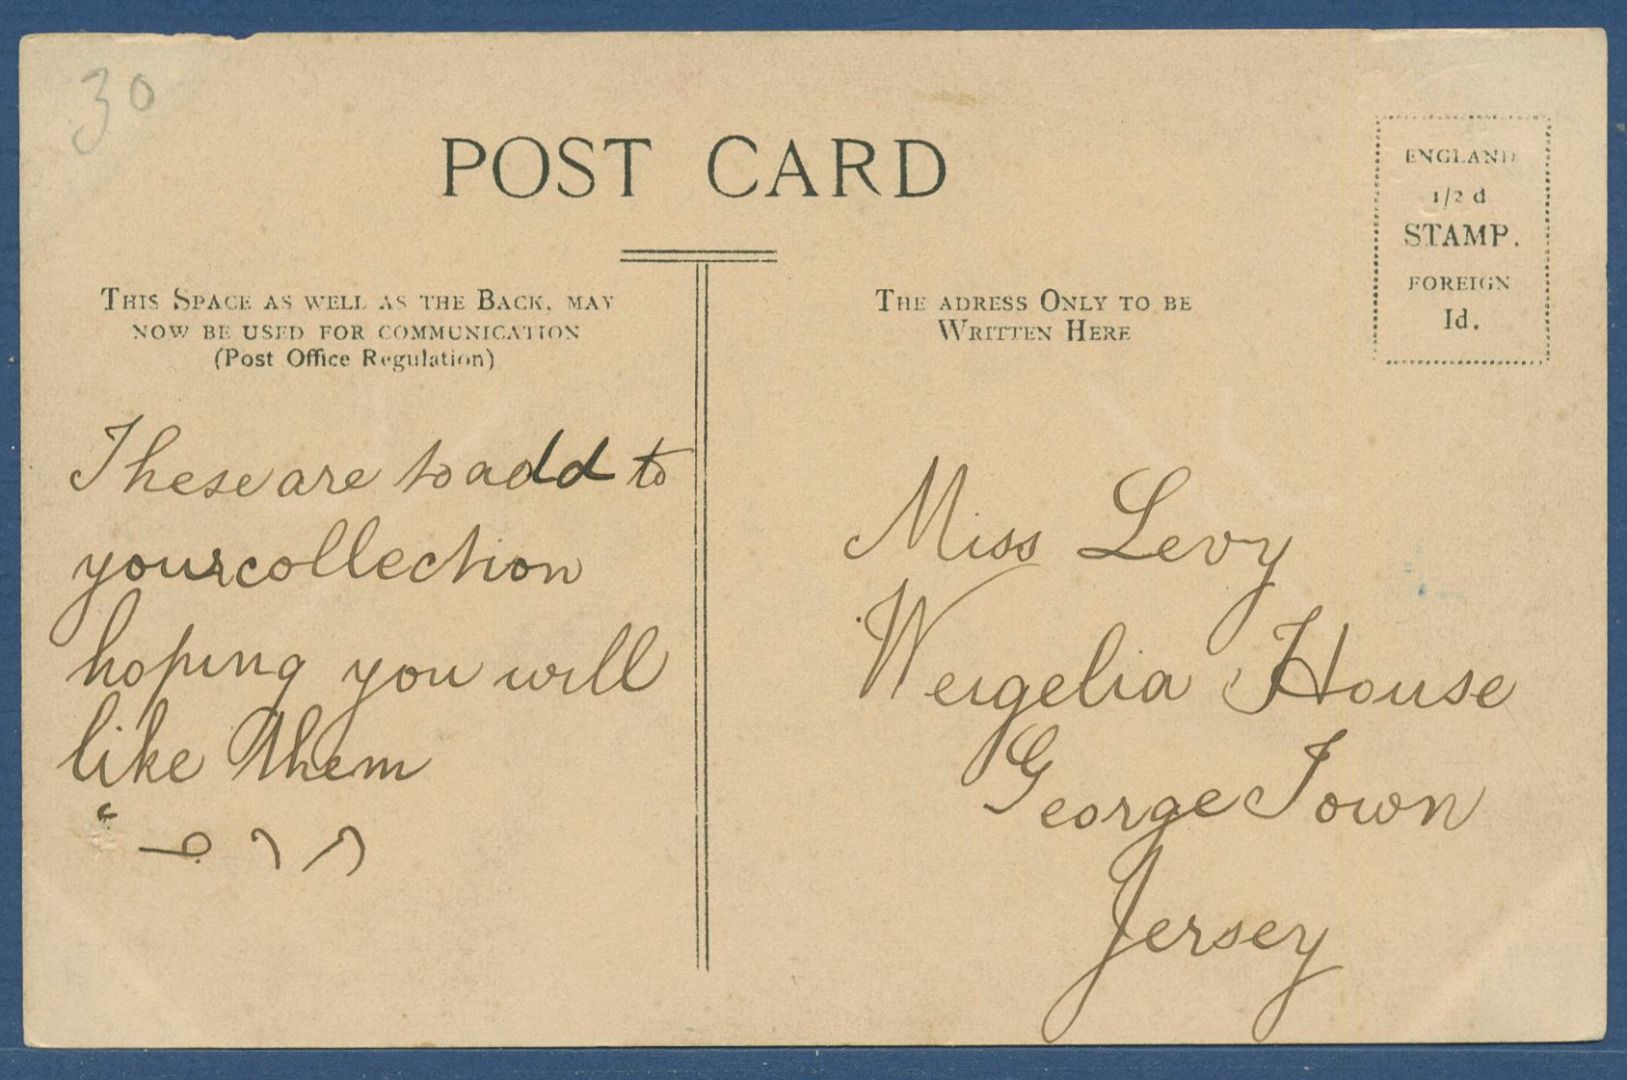 30
POST CARD
ENGLAND
1/2 d
STAMP.
FOREIGN
Id.
THIS SPACE AS WELL AS THE BACK, MAY
NOW BE USED FOR COMMUNICATION
(Post Office Regulation)
THE ADRESS ONLY TO BE
WRITTEN HERE
These are to add to
your collection
hoping you will
like them
Miss Levy
Weigelia House
George Town
Jersey